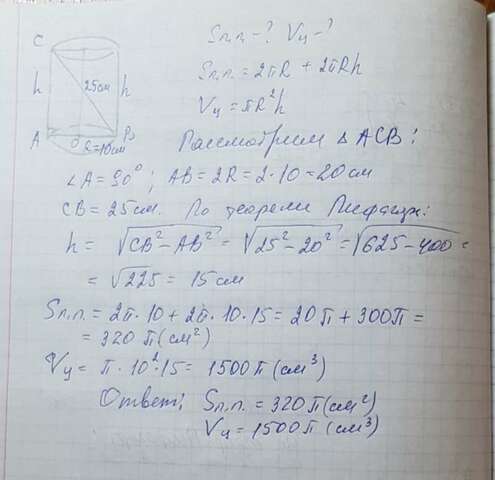 Sп.п. - ? Vц - ?
C
Sп.п. = 2πR + 2πRh
h 25см h
Vц = πR²h
A O B
R=10см
Рассмотрим △ACB:
∠A = 90°; AB = 2R = 2·10 = 20 см
CB = 25 см. По теореме Пифагора:
h = √CB² - AB² = √25² - 20² = √625 - 400 =
= √225 = 15 см
Sп.п. = 2π·10 + 2π·10·15 = 20π + 300π =
= 320π (см²)
Vц = π·10²·15 = 1500π (см³)
Ответ: Sп.п. = 320π (см²)
Vц = 1500π (см³)